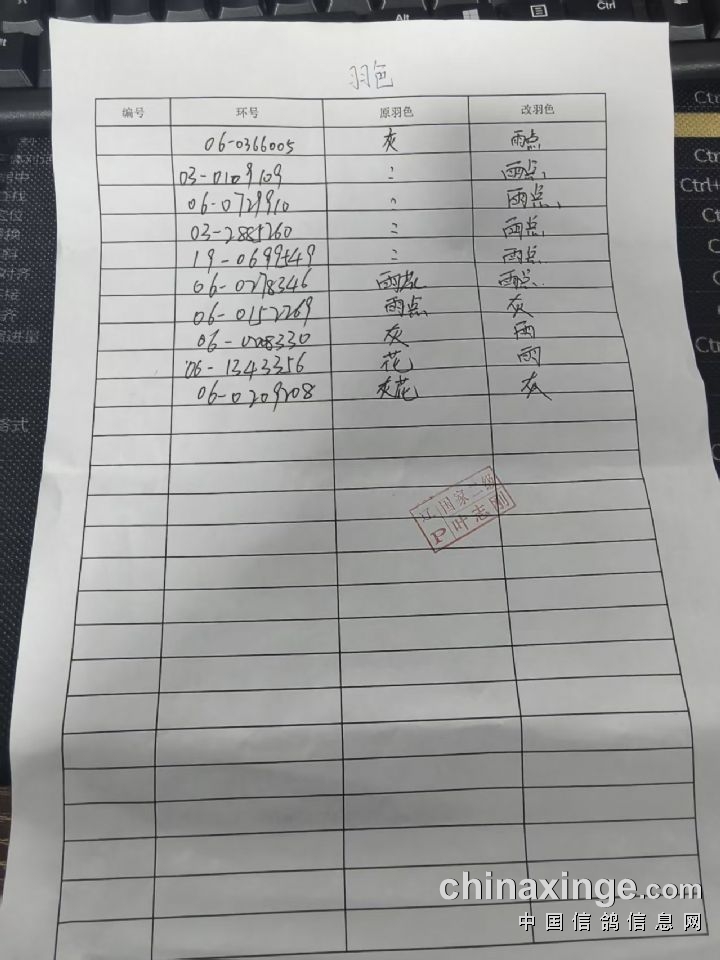 羽色
编号 环号 原羽色 改羽色
06-0366005 灰 雨点
03-0109109 〃 雨点
06-0729910 〃 雨点
03-2885260 〃 雨点
19-0699549 〃 雨点
06-0278346 雨点 雨点
06-0152269 雨点 灰
灰 雨
06-1343356 花 雨
06-0209208 灰花 灰
辽国家二级
P叶志刚
chinaxinge.com
中国信鸽信息网
Alt
Ctrl